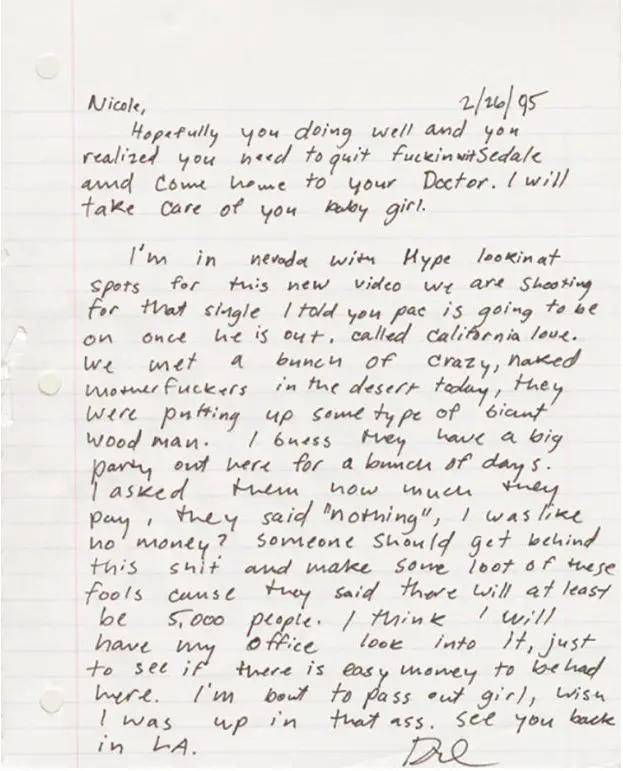 Nicole, 2/26/95
Hopefully you doing well and you
realized you need to quit fuckin wit Sedale
and come home to your Doctor. I will
take care of you baby girl.
I'm in nevada with Hype lookin at
spots for this new video we are shooting
for that single I told you pac is going to be
on once he is out. called california love.
We met a bunch of crazy, naked
motherfuckers in the desert today, they
were putting up some type of giant
wood man. I guess they have a big
party out here for a bunch of days.
I asked them how much they
pay, they said "nothing", I was like
no money? someone should get behind
this shit and make some loot of these
fools cause they said there will at least
be 5,000 people. I think I will
have my office look into it, just
to see if there is easy money to be had
here. I'm bout to pass out girl, wish
I was up in that ass. see you back
in LA. Dre